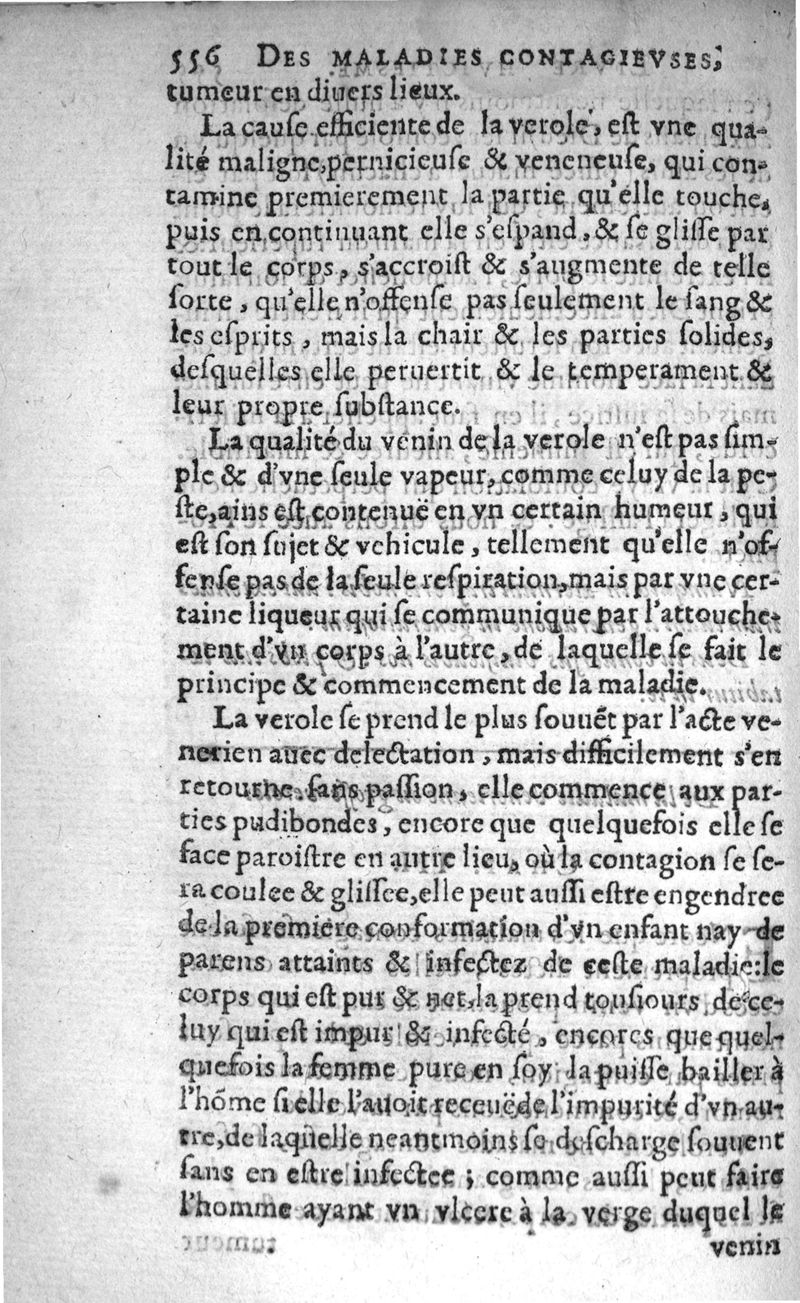 556 DES MALADIES CONTAGIEVSES,
tumeur en diuers lieux.
La cauſe efficiente de la verole, eſt vne qua-
lité maligne, pernicieuſe & veneneuſe, qui con-
tamine premierement la partie qu'elle touche,
puis en continuant elle s'eſpand, & ſe gliſſe par
tout le corps, s'accroiſt & s'augmente de telle
ſorte, qu'elle n'offenſe pas ſeulement le ſang &
les eſprits, mais la chair & les parties ſolides,
deſquelles elle peruertit & le temperament &
leur propre ſubſtance.
La qualité du venin de la verole n'eſt pas ſim-
ple & d'vne ſeule vapeur, comme celuy de la pe-
ſte, ains eſt contenuë en vn certain humeur, qui
eſt ſon ſujet & vehicule, tellement qu'elle n'of-
fenſe pas de la ſeule reſpiration, mais par vne cer-
taine liqueur qui ſe communique par l'attouche-
ment d'vn corps à l'autre, de laquelle ſe fait le
principe & commencement de la maladie.
La verole ſe prend le plus ſouuẽt par l'acte ve-
nerien auec delectation, mais difficilement s'en
retourne ſans paſſion, elle commence aux par-
ties pudibondes, encore que quelquefois elle ſe
face paroiſtre en autre lieu, où la contagion ſe ſe-
ra coulee & gliſſee, elle peut auſſi eſtre engendree
de la premiere conformation d'vn enfant nay de
parens attaints & infectez de ceſte maladie: le
corps qui eſt pur & net, la prend touſiours de ce-
luy qui eſt impur & infecté, encores que quel-
quefois la femme pure en ſoy la puiſſe bailler à
l'hõme ſi elle l'auoit receuë de l'impurité d'vn au-
tre, de laquelle neantmoins ſe deſcharge ſouuent
ſans en eſtre infectee ; comme auſſi peut faire
l'homme ayant vn vlcere à la verge duquel le
venin